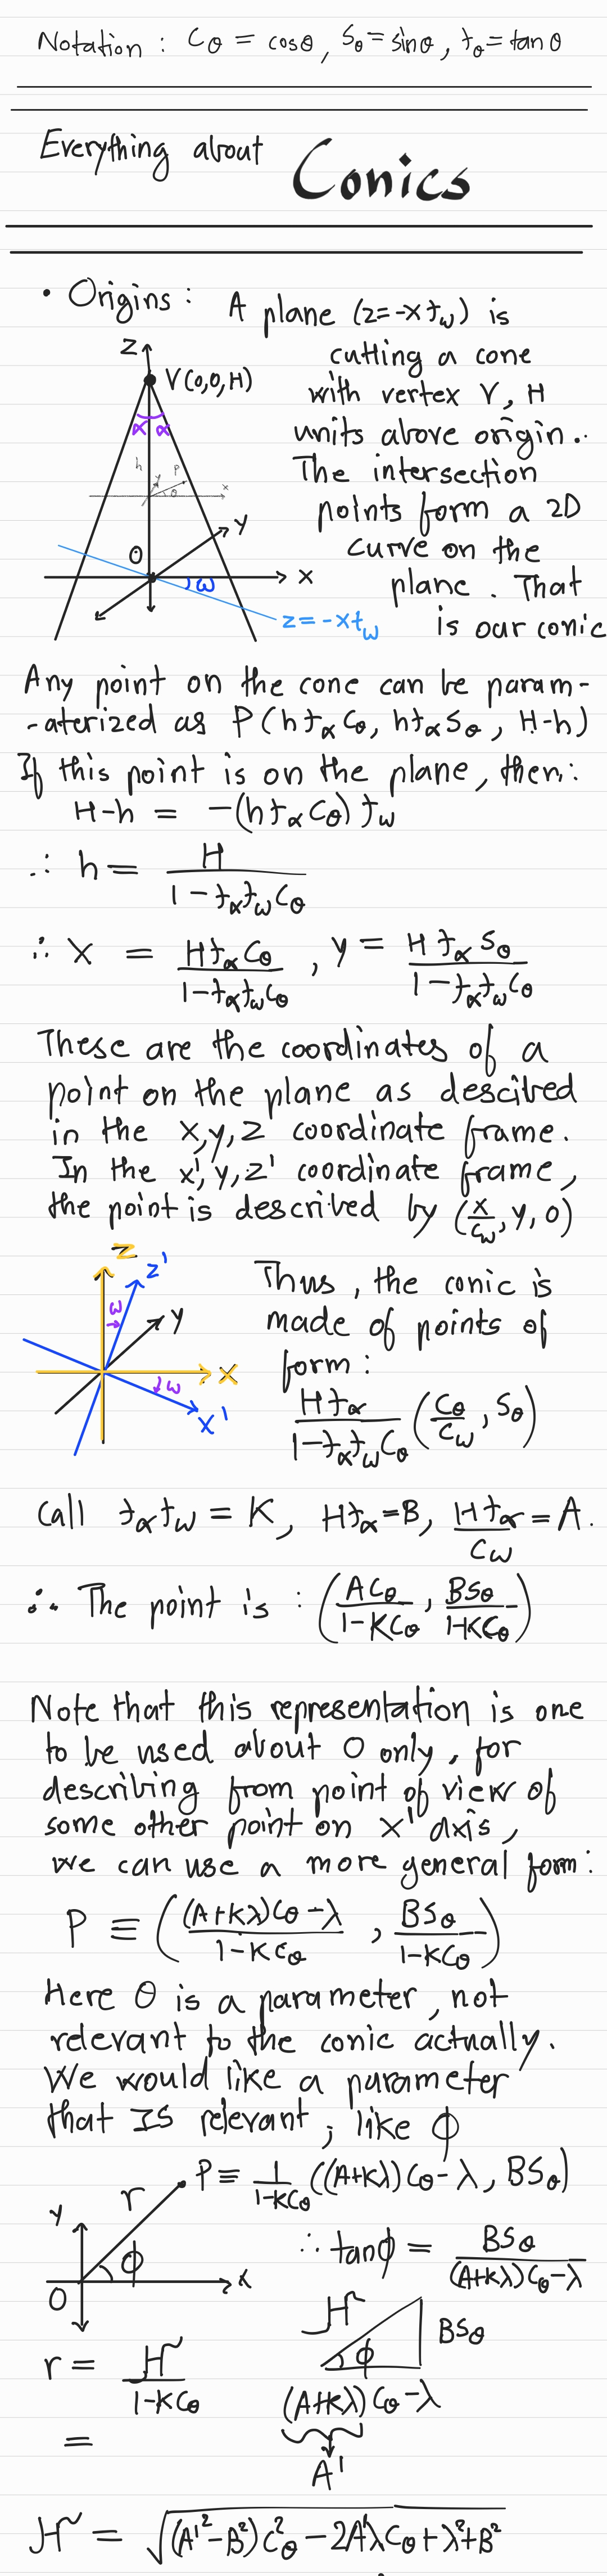 Notation : Cθ = cosθ, Sθ = sinθ, tθ = tanθ
Everything about Conics
• Origins : A plane (z=-xtω) is
cutting a cone
with vertex V, H
units above origin.
The intersection
points form a 2D
curve on the
plane. That
is our conic
Z
V(0,0,H)
α α
h
y P
θ x
O
y
x
ω
z=-xtω
Any point on the cone can be param-
-aterized as P(htαCθ, htαSθ, H-h)
If this point is on the plane, then:
H-h = -(htαCθ)tω
∴ h = H/(1-tαtωCθ)
∴ x = HtαCθ/(1-tαtωCθ), y = HtαSθ/(1-tαtωCθ)
These are the coordinates of a
point on the plane as descibed
in the x,y,z coordinate frame.
In the x',y,z' coordinate frame,
the point is described by (x/Cω, y, 0)
Z
z'
ω
y
x
ω
x'
Thus, the conic is
made of points of
form:
Htα/(1-tαtωCθ) (Cθ/Cω, Sθ)
Call tαtω = K, Htα=B, Htα/Cω = A.
∴ The point is : (ACθ/(1-KCθ), BSθ/(1-KCθ))
Note that this representation is one
to be used about O only, for
describing from point of view of
some other point on x' axis,
we can use a more general form:
P ≡ (((A+Kλ)Cθ-λ)/(1-KCθ), BSθ/(1-KCθ))
Here θ is a parameter, not
relevant to the conic actually.
We would like a parameter
that IS relevant, like ϕ
y
r
P≡ 1/(1-KCθ) ((A+Kλ)Cθ-λ, BSθ)
ϕ
O
x
∴ tanϕ = BSθ/((A+Kλ)Cθ-λ)
r = H/(1-KCθ)
=
H
ϕ
BSθ
(A+Kλ)Cθ-λ
A'
H = √((A'²-B²)C²θ - 2A'λCθ + λ²+B²)